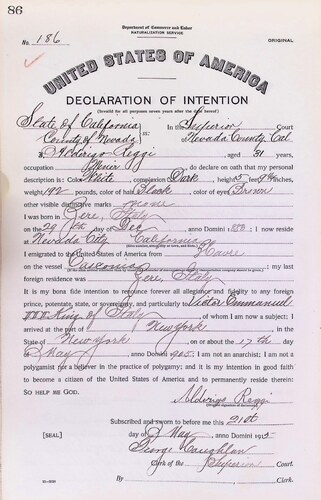 86
Department of Commerce and Labor
NATURALIZATION SERVICE
No. 186 ORIGINAL
UNITED STATES OF AMERICA
DECLARATION OF INTENTION
(Invalid for all purposes seven years after the date hereof)
State of California In the Superior Court
County of Nevada ss: Nevada County, Cal
I, Alderigo Reggi, aged 31 years,
occupation Miner, do declare on oath that my personal
description is: Color White, complexion Dark, height 5 feet inches,
weight, 192 pounds, color of hair Black, color of eyes Brown
other visible distinctive marks none
I was born in Gere, Italy
on the 29 day of Dec, anno Domini 1; I now reside
at Nevada City, California
I emigrated to the United States of America from Havre
on the vessel Gasconia; my last
foreign residence was Gere, Italy
It is my bona fide intention to renounce forever all allegiance and fidelity to any foreign
prince, potentate, state, or sovereignty, and particularly to Victor Emmanuel
III King of Italy, of whom I am now a subject; I
arrived at the port of New York, in the
State of New York, on or about the 17th day
of May, anno Domini 1905; I am not an anarchist; I am not a
polygamist nor a believer in the practice of polygamy; and it is my intention in good faith
to become a citizen of the United States of America and to permanently reside therein:
SO HELP ME GOD.
Alderigo Reggi
Subscribed and sworn to before me this 21st
[SEAL] day of May, anno Domini 191
George Coughlan
Clerk of the Superior Court.
By, Clerk.